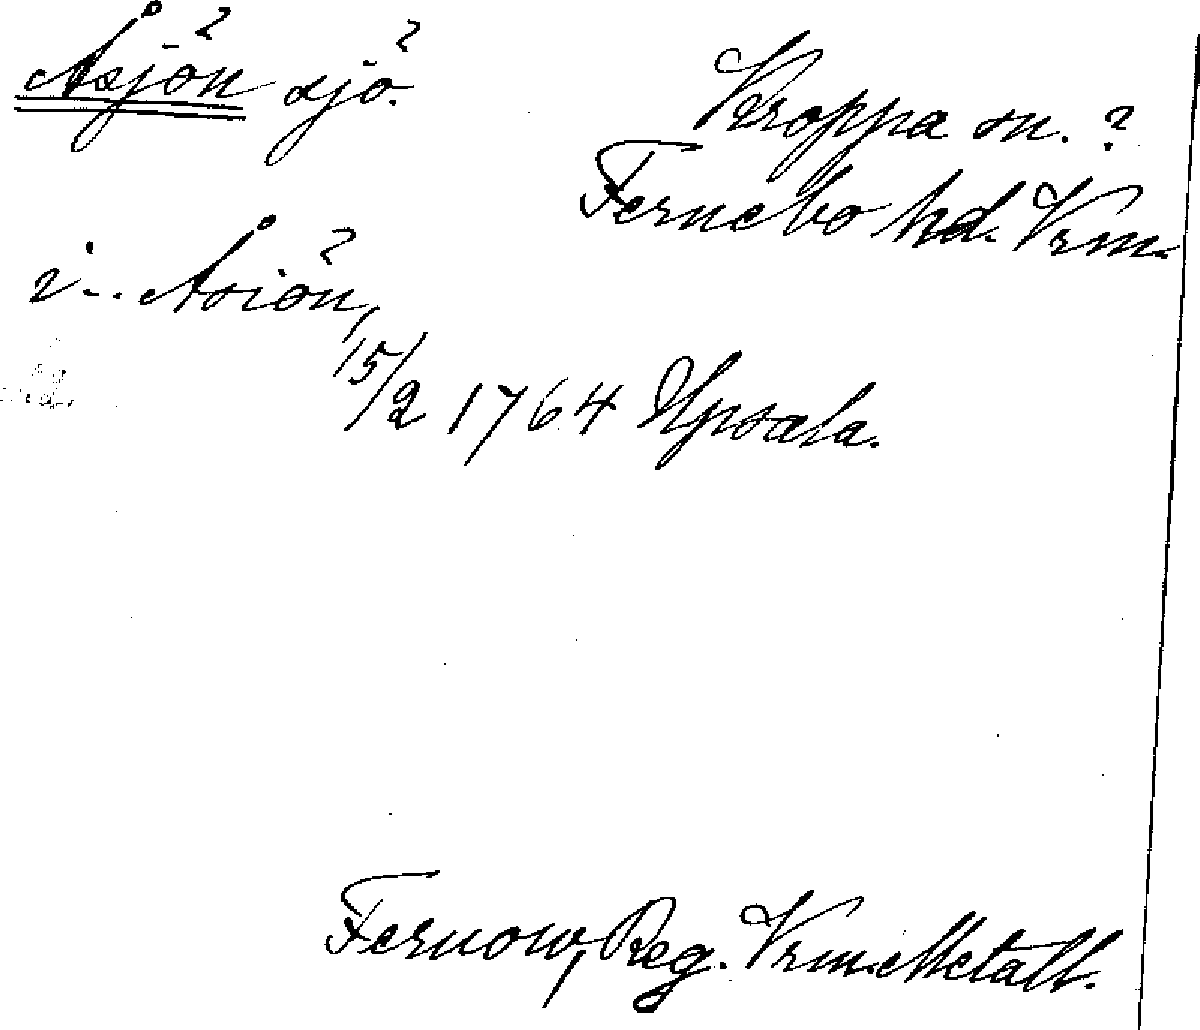 Åsjön? sjö?
Kroppa sn. ?
Fernebo hd. Vrm.
i .. Åsiön?,
15/2 1764 Upsala.
Fernow, Reg. Vrm. Metall.